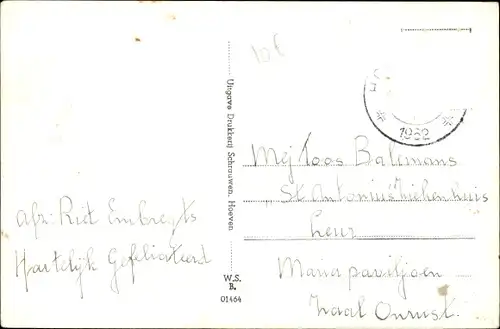 10 €
1962
Mej Toos Balemans
St Antonius Ziekenhuis
Leur
Maria paviljoen
Zaal Onrust.
Uitgave Drukkerij Schrauwen, Hoeven
afz: Riet Embregts
Hartelijk Gefeliciteerd
W.S.
B.
01464